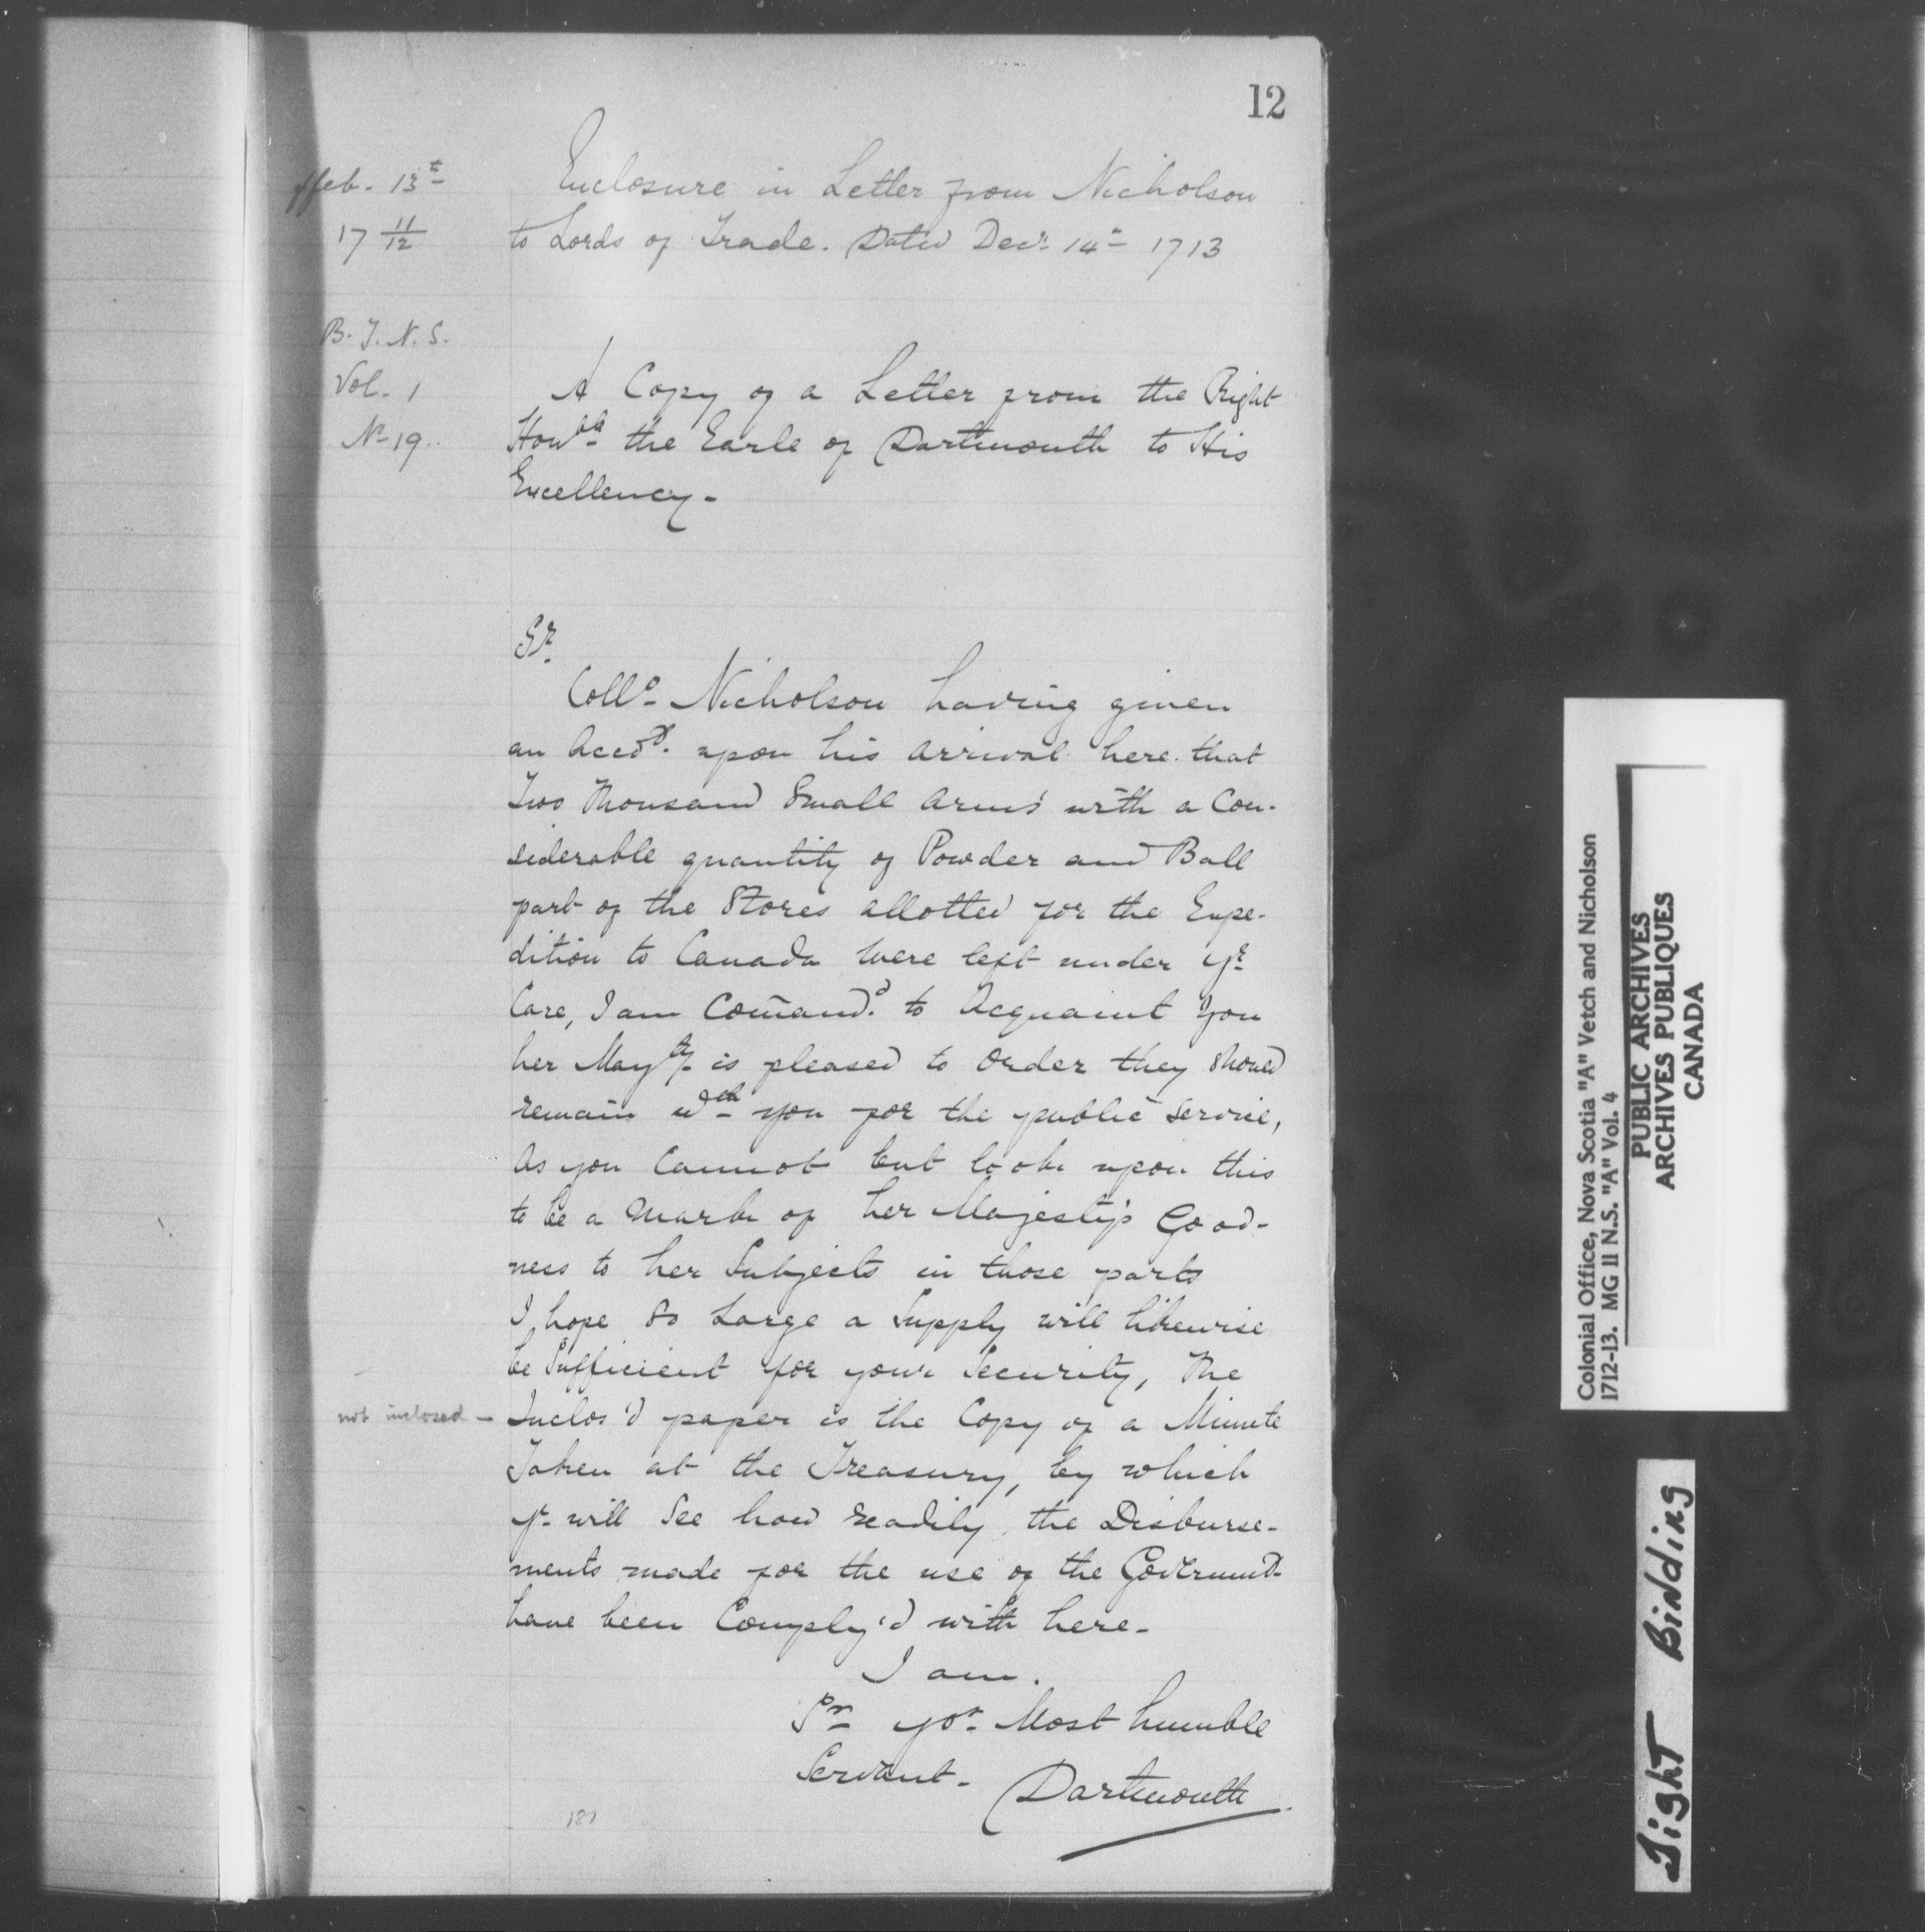 12
ffeb. 13th
17 11/12
Enclosure in Letter from Nicholson
to Lords of Trade. Dated Decr 14th 1713
B. T. N. S.
Vol. 1
No 19.
A Copy of a Letter from the Right
Honble the Earle of Dartmouth to His
Excellency-
Sr.
Collo- Nicholson having given
an Accot. upon his arrival here that
Two Thousand Small Arms with a Con-
siderable quantity of Powder and Ball
part of the Stores allotted for the Expe-
dition to Canada were left under yr
Care, I am Com̄and'd to Acquaint You
her Maty is pleased to Order they should
remain wth you for the publick Service,
As you Cannot but looke upon this
to be a Marke of her Majesty's Good-
ness to her Subjects in those parts
I hope So Large a Supply will likewise
be Sufficient for your Security, The
not inclosed - Inclos'd paper is the Copy of a Minute
Taken at the Treasury, by which
yo will See how readily the Disburse-
ments made for the use of the Governmt
have been Comply'd with here-
I am.
Sr yor Most humble
Servant- Dartmouth
181
Colonial Office, Nova Scotia "A" Vetch and Nicholson
1712-13. MG 11 N.S. "A" Vol. 4
PUBLIC ARCHIVES
ARCHIVES PUBLIQUES
CANADA
Tight Binding